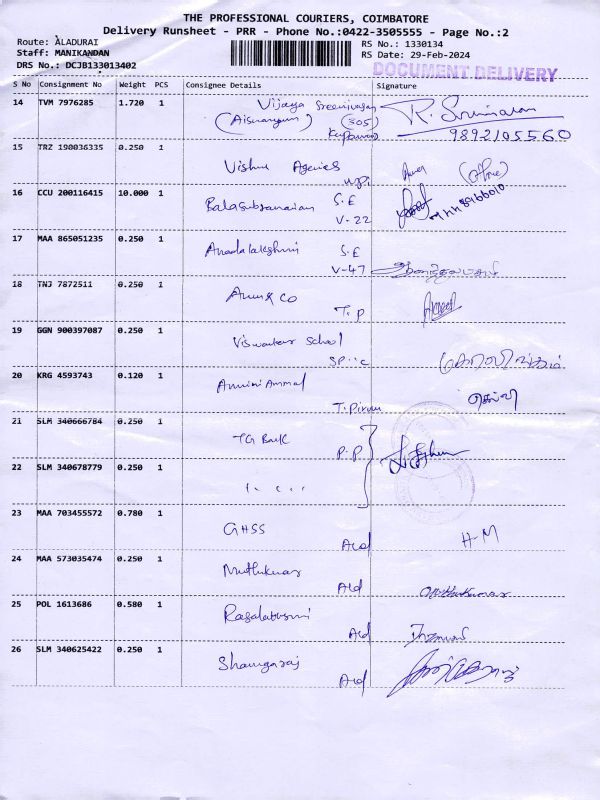 THE PROFESSIONAL COURIERS, COIMBATORE
Delivery Runsheet - PRR - Phone No.:0422-3505555 - Page No.:2
Route: ALADURAI
Staff: MANIKANDAN
DRS No.: DCJB133013402
RS No.: 1330134
RS Date: 29-Feb-2024
DOCUMENT DELIVERY
S No Consignment No Weight PCS Consignee Details Signature
14 TVM 7976285 1.720 1 Vijaya Sreenivasan R. Srinivasan
(305)
9892105560
15 TRZ 190036335 0.250 1 Vishnu Agencies (office)
16 CCU 200116415 10.000 1 Balasubramanian S.E
V-22
17 MAA 865051235 0.250 1 Anandalakshmi S.E
V-47
18 TNJ 7872511 0.250 1 Arun & Co
T.P
19 GGN 900397087 0.250 1 School
20 KRG 4593743 0.120 1 Ammal செல்வி
21 SLM 340666784 0.250 1 TG Bank P.P
22 SLM 340678779 0.250 1
23 MAA 703455572 0.780 1 GHSS H-M
Ald
24 MAA 573035474 0.250 1 Muthukumar
Ald Muthukumar
25 POL 1613686 0.580 1 Rasalakshmi
Ald
26 SLM 340625422 0.250 1 Shanugaraj
Ald